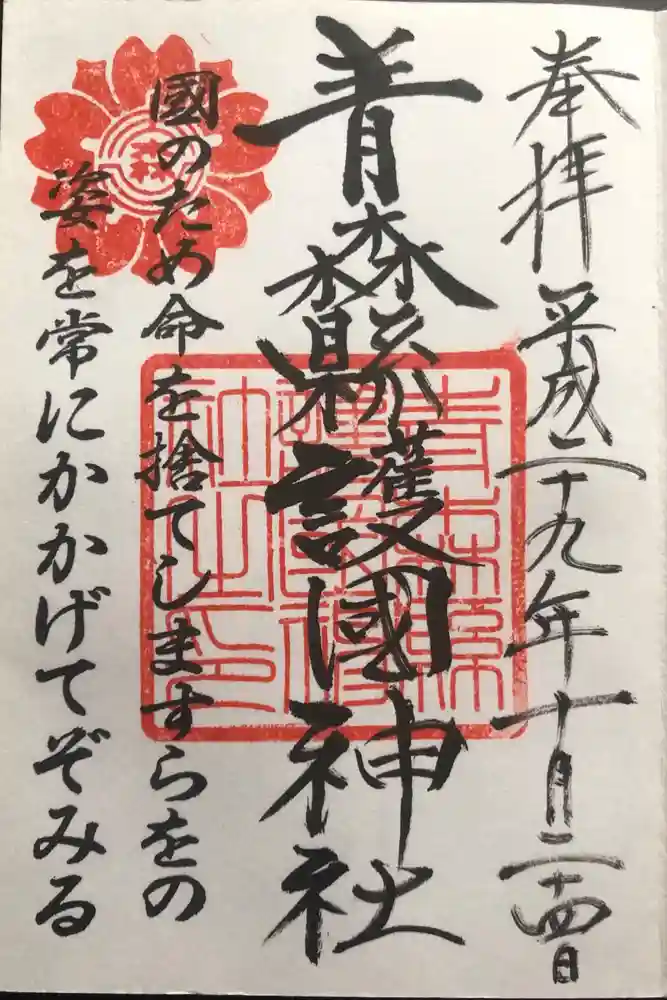 奉拝 平成二十九年十月二十四日
青森縣護國神社
國のため命を捨てしますらをの
姿を常にかかげてぞみる
森